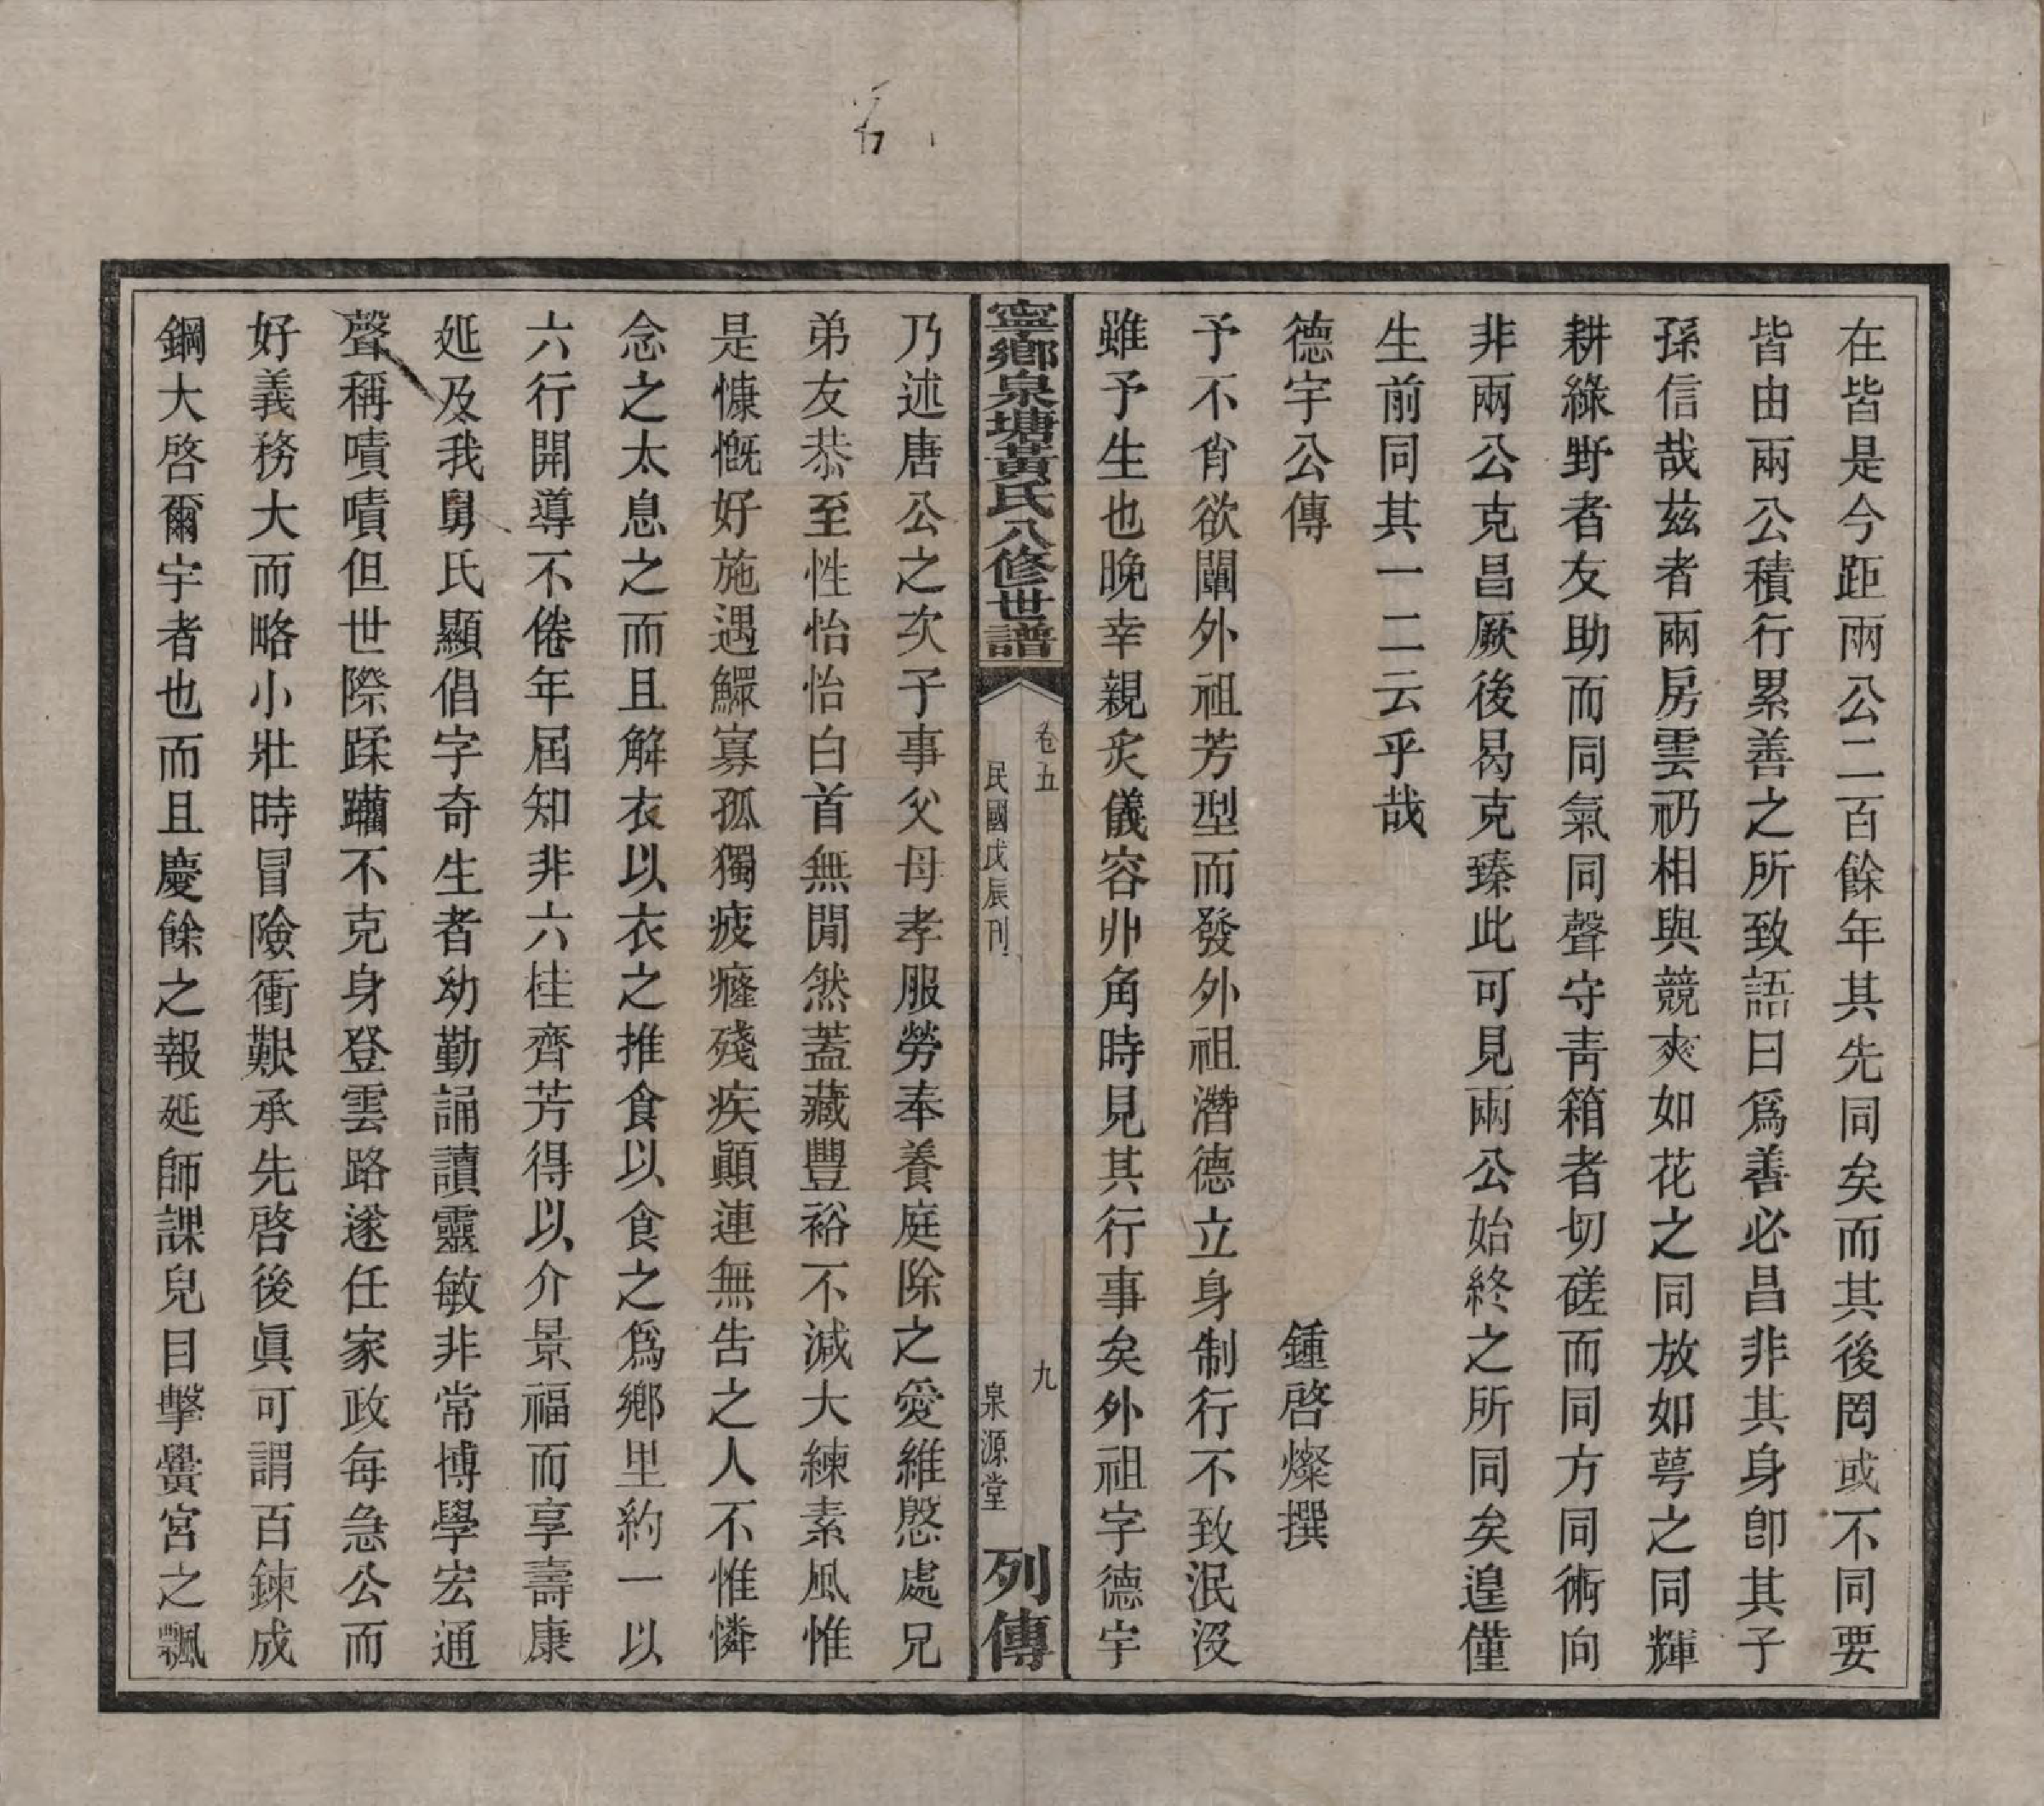 在皆是今距兩公二百餘年其先同矣而其後罔或不同要
皆由兩公積行累善之所致語曰爲善必昌非其身卽其子
孫信哉茲者兩房雲礽相與競爽如花之同放如萼之同輝
耕綠野者友助而同氣同聲守靑箱者切磋而同方同術向
非兩公克昌厥後曷克臻此可見兩公始終之所同矣遑僅
生前同其一二云乎哉
德宇公傳　鍾啓燦撰
予不肖欲闡外祖芳型而發外祖潛德立身制行不致泯沒
雖予生也晚幸親炙儀容丱角時見其行事矣外祖字德宇
寧鄉泉塘黃氏八修世譜　卷五　民國戊辰刊　九　泉源堂　列傳
乃述唐公之次子事父母孝服勞奉養庭除之愛維慇處兄
弟友恭至性怡怡白首無閒然蓋藏豐裕不減大練素風惟
是慷慨好施遇鰥寡孤獨疲癃殘疾顚連無告之人不惟憐
念之太息之而且解衣以衣之推食以食之爲鄉里約一以
六行開導不倦年屆知非六桂齊芳得以介景福而享壽康
延及我舅氏顯倡字奇生者幼勤誦讀靈敏非常博學宏通
聲稱嘖嘖但世際蹂躪不克身登雲路遂任家政每急公而
好義務大而略小壯時冒險衝艱承先啓後眞可謂百鍊成
鋼大啓爾宇者也而且慶餘之報延師課兒目擊黌宮之飄